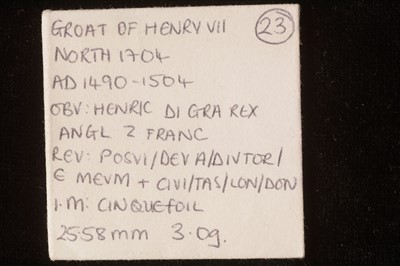 GROAT OF HENRY VII 23
NORTH 1704
AD 1490-1504
OBV: HENRIC DI GRA REX
ANGL Z FRANC
REV: POSVI/DEV A/DIVTOR/
E MEVM + CIVI/TAS/LON/DON
I.M: CINQUEFOIL
25.58mm 3.0g.